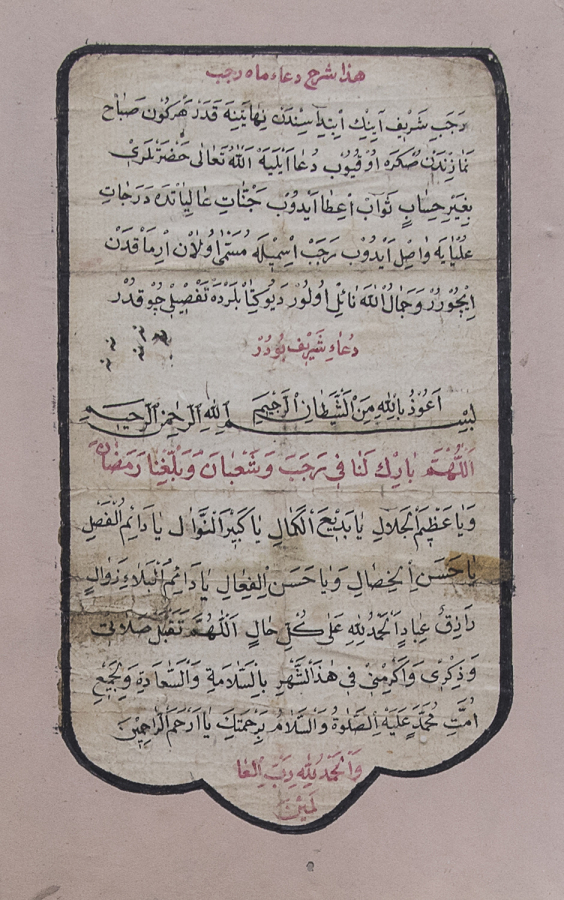 هذا شرح دعاء ماه رجب
رَجَبِ شَرِيفِ آيِنِكْ اِبْتِدَاسِنْدَنْ نِهَايَتِنَه قَدَرْ هَرْكُونْ صَبَاحْ
نَمَازِنْدَنْ صُكْرَه اُوقُيُوبْ دُعَا اَيْلَيَه اللّٰه تَعَالٰى حَضْرَتْلَرِى
بِغَيْرِ حِسَابٍ ثَوَابْ اِعْطَا اَيْدُوبْ جَنَّاتِ عَالِيَاتْدَه دَرَجَاتِ
عُلْيَايَه وَاصِلْ اَيْدُوبْ رَجَبْ اِسْمِيلَه مُسَمّٰى اُولَانْ اِرْمَاقْدَنْ
اِيچُورُرْ وَجَمَالُ اللّٰه نَائِلْ اُولُورْ دَيُو كِتَابْلَرْدَه تَفْصِيلِى چُوقْدُرْ
دُعَاءِ شَرِيفْ بُودُرْ
اَعُوذُ بِاللّٰهِ مِنَ الشَّيْطَانِ الرَّجِيمِ
بِسْمِ اللّٰهِ الرَّحْمٰنِ الرَّحِيمِ
اَللّٰهُمَّ بَارِكْ لَنَا فِى رَجَبَ وَشَعْبَانَ وَبَلِّغْنَا رَمَضَانَ
وَيَا عَظِيمَ الْجَلَالِ يَا بَدِيعَ الْكَمَالِ يَا كَبِيرَ النَّوَالِ يَا دَائِمَ الْفَضْلِ
يَا حَسَنَ الْخِصَالِ وَيَا حَسَنَ الْفِعَالِ يَا دَائِمَ الْبَلَاءِ زَوَالٍ
رَازِقُ عِبَادٍ اَلْحَمْدُ لِلّٰهِ عَلٰى كُلِّ حَالٍ اَللّٰهُمَّ تَقَبَّلْ صَلَاتِى
وَذِكْرِى وَاَكْرِمْنِى فِى هٰذَا الشَّهْرِ بِالسَّلَامَةِ وَالسَّعَادَةِ وَلِجَمِيعِ
اُمَّتِ مُحَمَّدٍ عَلَيْهِ الصَّلٰوةُ وَالسَّلَامُ بِرَحْمَتِكَ يَا اَرْحَمَ الرَّاحِمِينَ
وَالْحَمْدُ لِلّٰهِ رَبِّ الْعَا
لَمِينَ